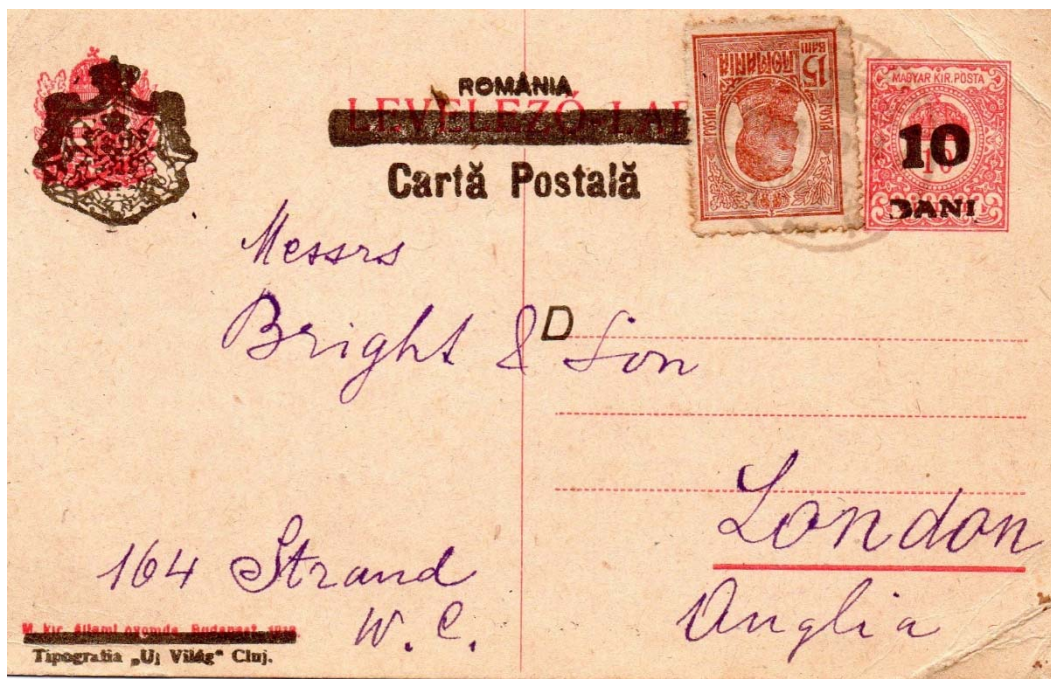 ROMÂNIA
LEVELEZŐ-LAP
Cartă Postală
15
BANI
ROMANIA
POSTA
POSTA
MAGYAR KIR. POSTA
10
10
BANI
Messrs
Bright & Son
D
London
Anglia
164 Strand
W. C.
M. kir. állami nyomda. Budapest
Tipografia „Uj Világ" Cluj.